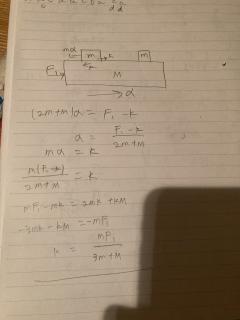 mα m k m
k
F₁ M
α
(2m+M)α = F₁ - k
α = F₁ - k / 2m+M
mα = k
m(F₁-k) / 2m+M = k
mF₁ - mk = 2mk + kM
-3mk - kM = -mF₁
k = mF₁ / 3m+M